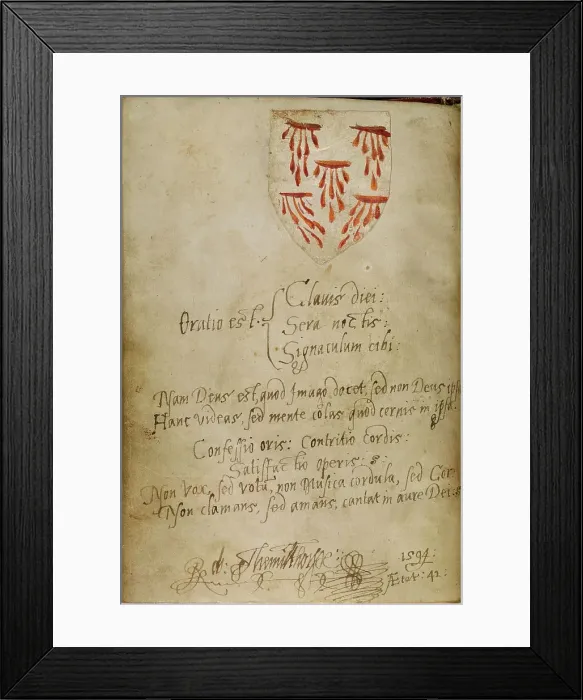 Clavis diei:
Oratio est. Sera noctis:
Signaculum cibi:
Nam Deus est, quod Imago docet, sed non Deus ipsa
Hanc videas, sed mente colas quod cernis in ipsa.
Confessio oris: Contritio cordis:
Satisfactio operis:
Non vox, sed votu, non Musica cordula, sed Cor.
Non clamans, sed amans, cantat in aure Dei.
Rd:
1594.
Ætat: 42.